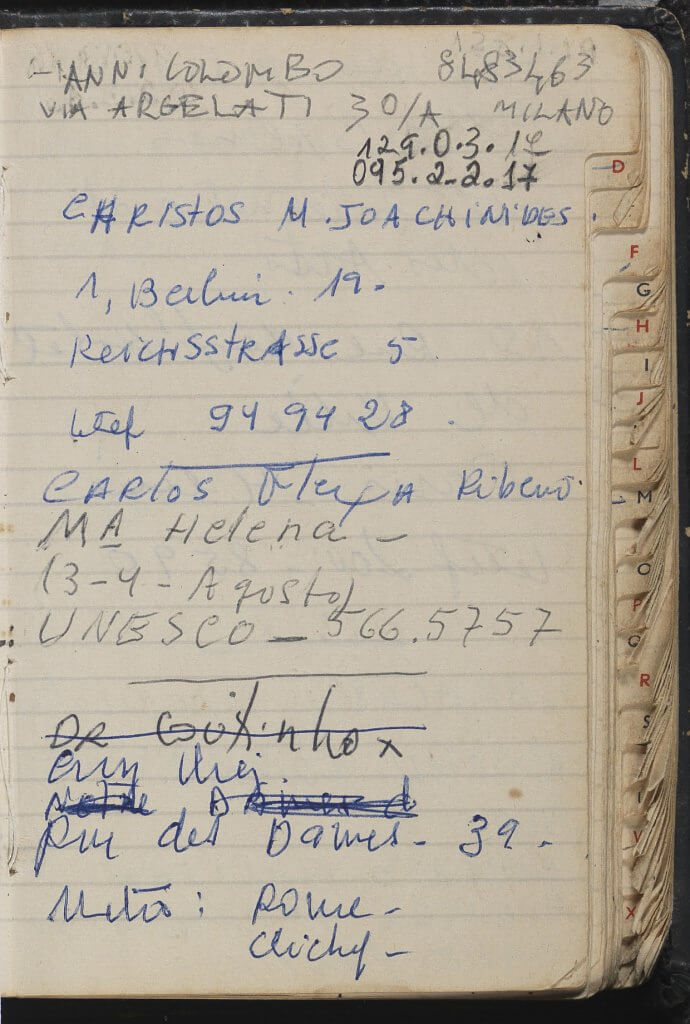 GIANNI COLOMBO 8483463
VIA ARGELATI 30/A MILANO
129.0.3.12
095.2.2.17
CHRISTOS M. JOACHIMIDES.
1, Berlin. 19.
REICHSSTRASSE 5.
94 94 28.
CARLOS Ribeiro
MA Helena -
13-4- Agosto
UNESCO - 566.5757
DR Coutinho x
Rue des Dames - 39 -
Metrô: Rome -
Clichy -
D
F
G
H
I
J
L
M
O
P
Q
R
S
V
X